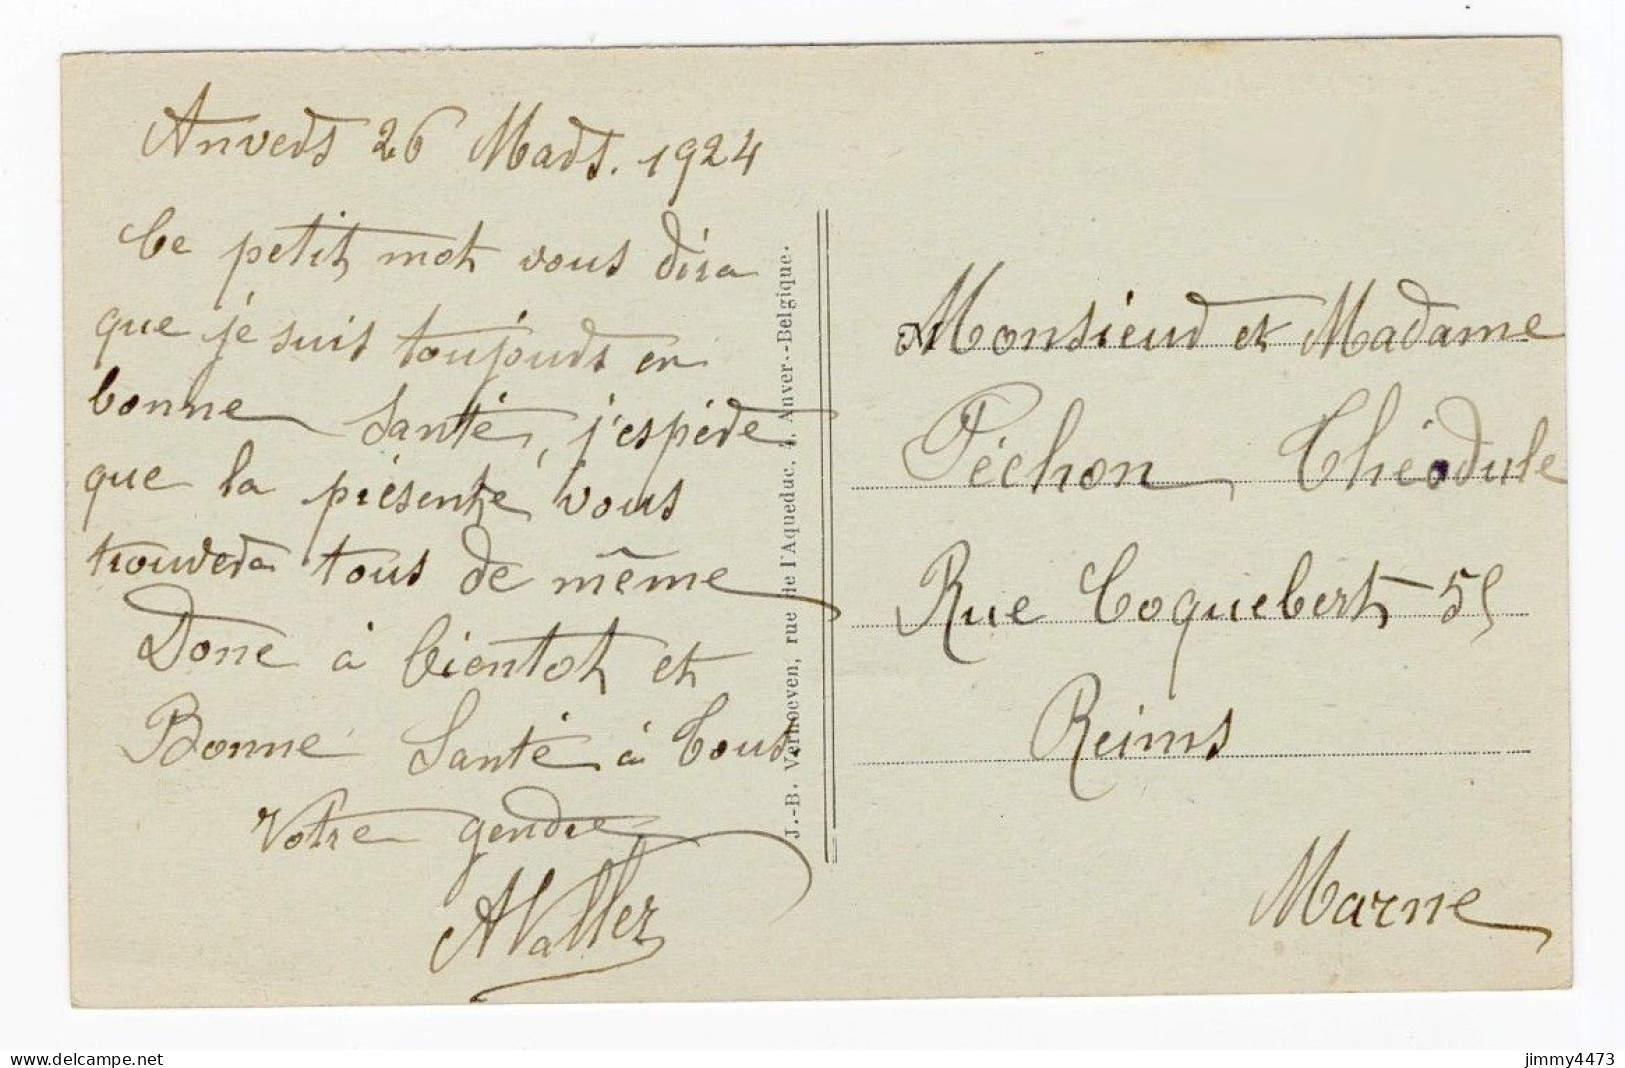 Anvers 26 Mars. 1924
Ce petit mot vous dira
que je suis toujours en
bonne Santé, j'espère
que la présente vous
trouvera tous de même
Donc à bientot et
Bonne Santé à Tous.
Votre gendre
J.-B. Verhoeven, rue de l'Aqueduc, 4, Anver.--Belgique.
Monsieur et Madame
Péchon Théodule
Rue Coquebert 55
Reims
Marne
delcampe.net
jimmy4473